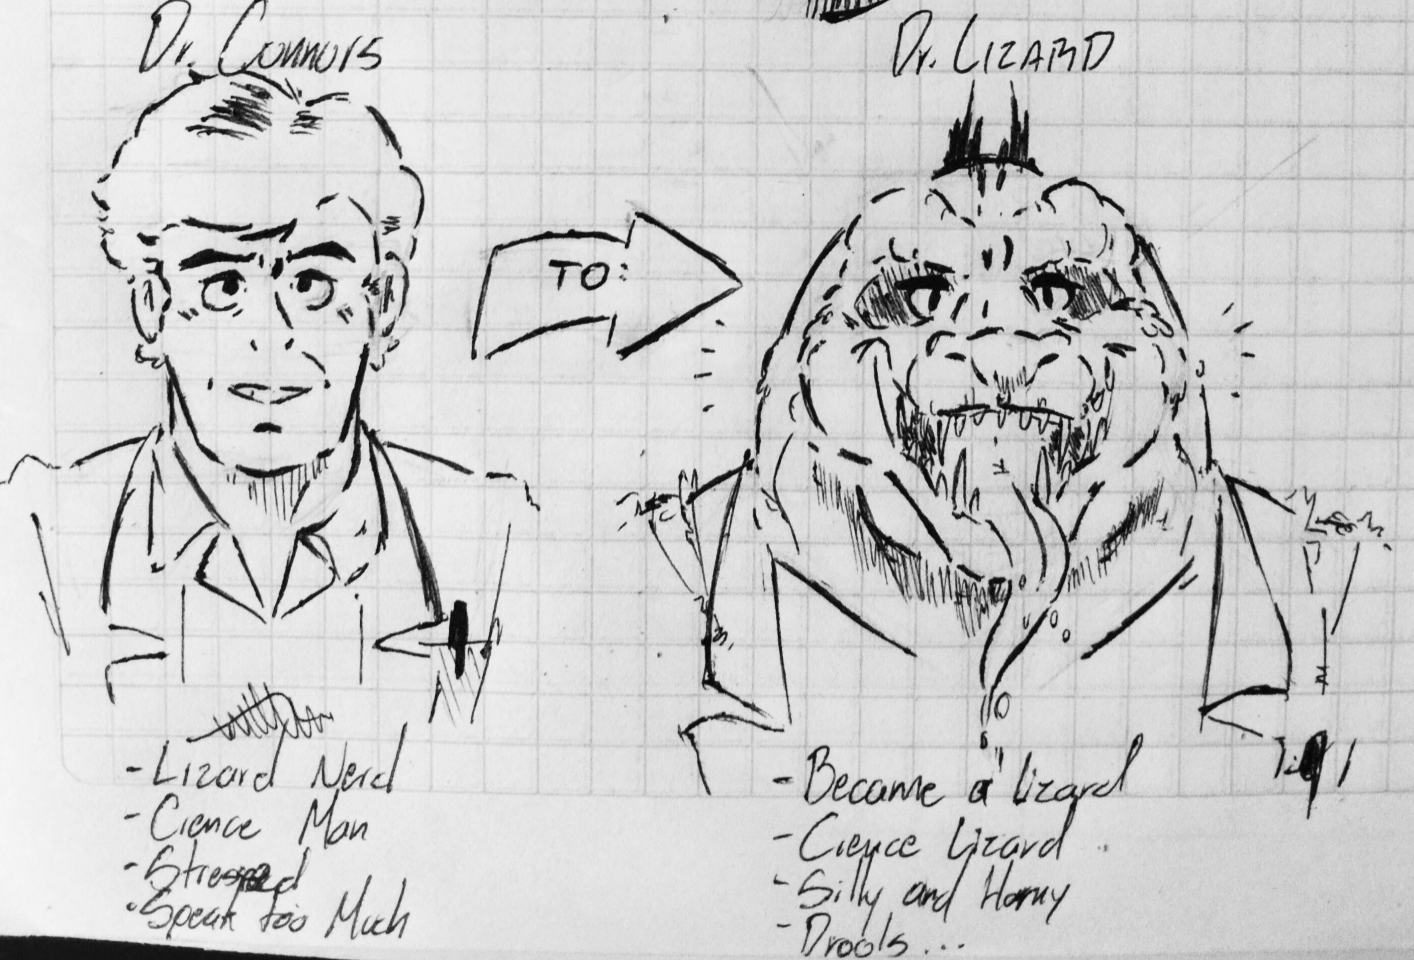 Dr. Connors
Dr. LIZARD
TO:
- Lizard Nerd
- Cience Man
- Stressed
- Speak too Much
- Became a lizard
- Cience Lizard
- Silly and Horny
- Drools...